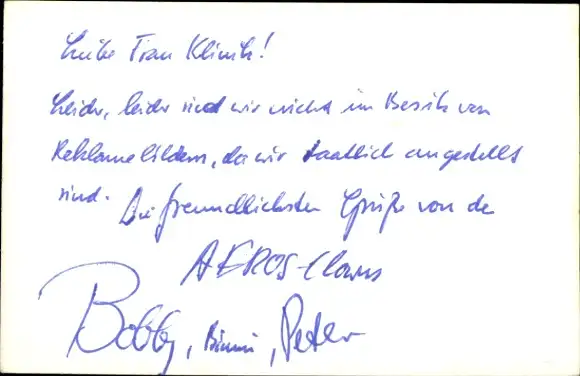 Liebe Frau Klimek!
Leider, leider sind wir nicht im Besitz von
Reklamebildern, da wir staatlich angestellt
sind. Die freundlichsten Grüße von den
AEROS-Clowns
Bobby, Bimmi, Peter